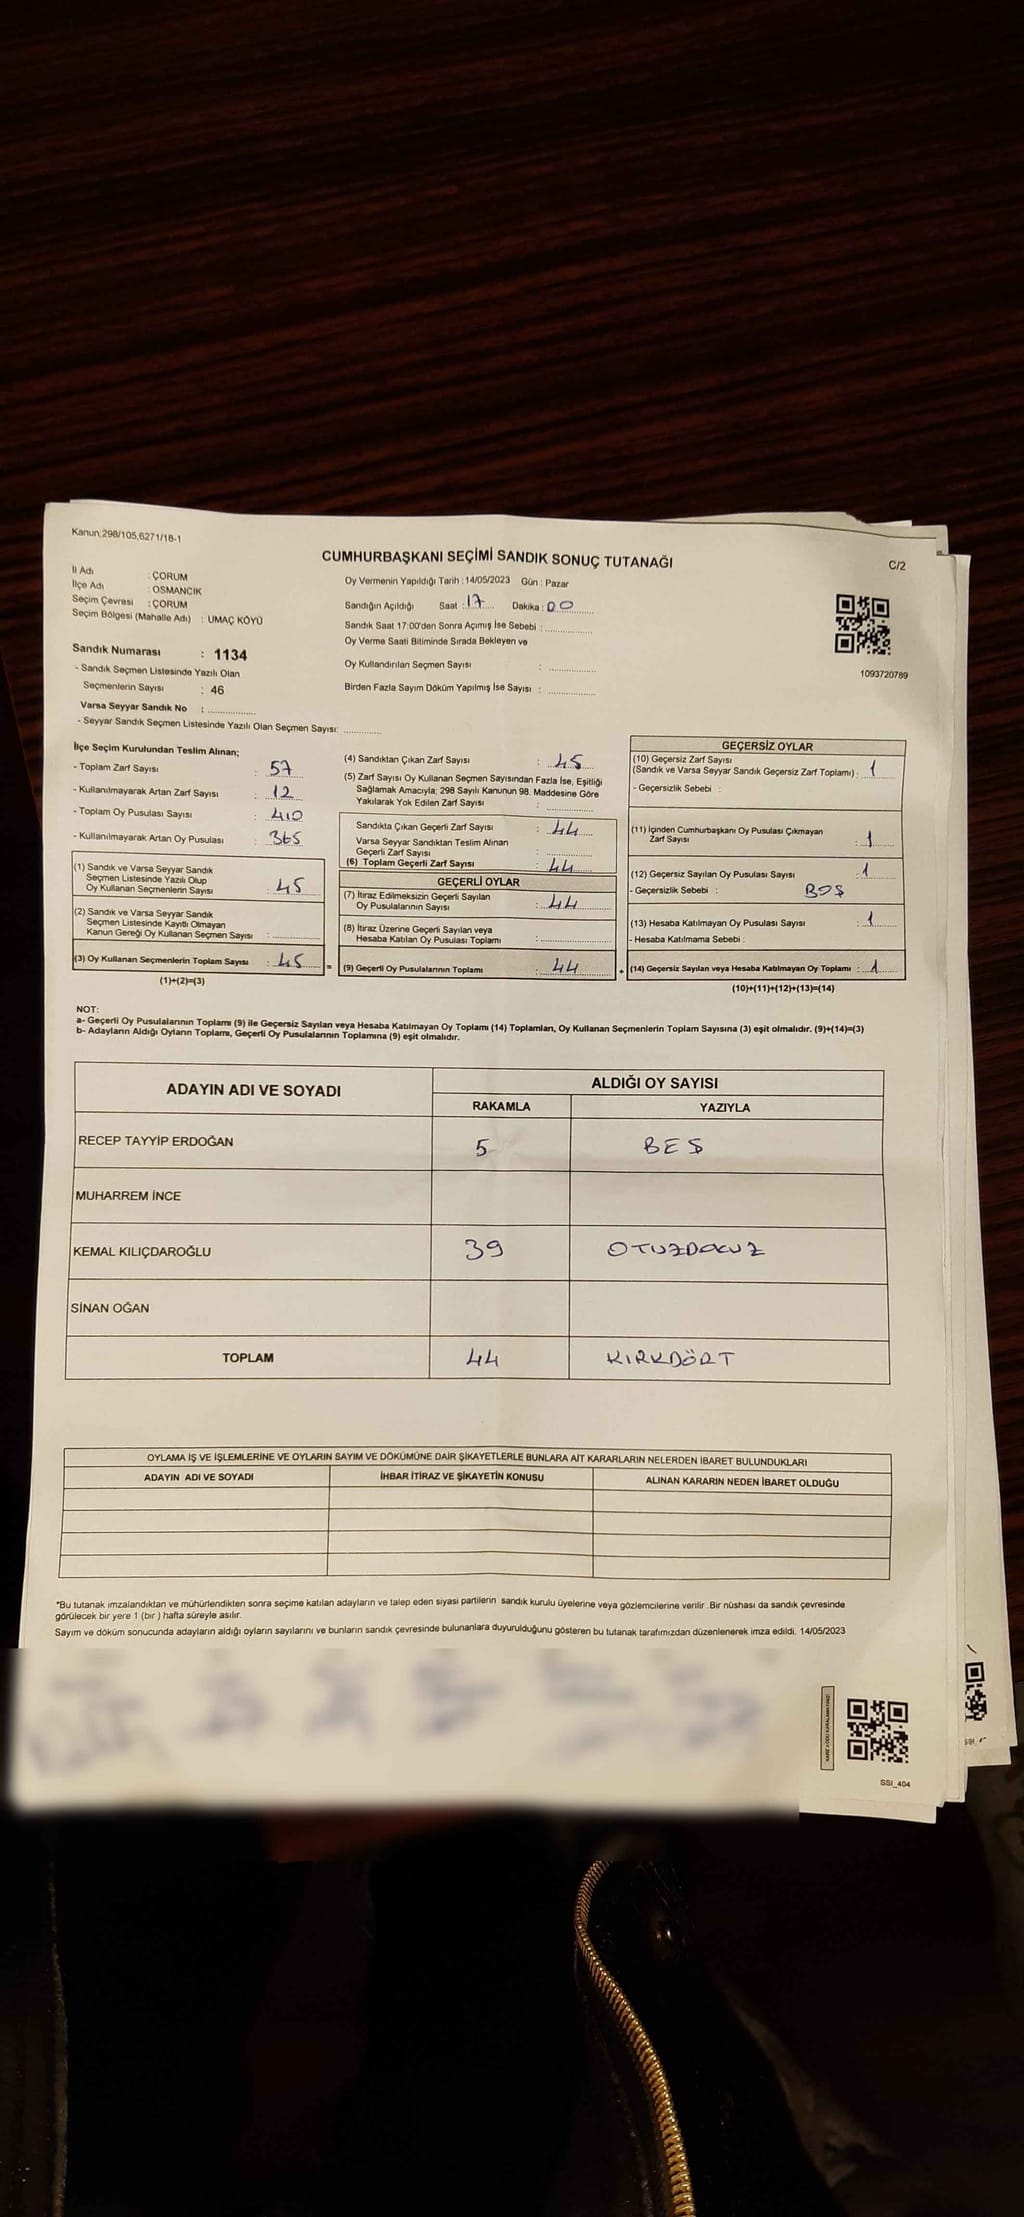 Kanun;298/105,6271/18-1
CUMHURBAŞKANI SEÇİMİ SANDIK SONUÇ TUTANAĞI
C/2
İl Adı : ÇORUM
İlçe Adı : OSMANCIK
Seçim Çevresi : ÇORUM
Seçim Bölgesi (Mahalle Adı) : UMAÇ KÖYÜ
Sandık Numarası : 1134
- Sandık Seçmen Listesinde Yazılı Olan
Seçmenlerin Sayısı : 46
Varsa Seyyar Sandık No :
- Seyyar Sandık Seçmen Listesinde Yazılı Olan Seçmen Sayısı:
Oy Vermenin Yapıldığı Tarih : 14/05/2023 Gün : Pazar
Sandığın Açıldığı Saat : 17 Dakika : 00
Sandık Saat 17:00'den Sonra Açımış İse Sebebi :
Oy Verme Saati Bitiminde Sırada Bekleyen ve
Oy Kullandırılan Seçmen Sayısı :
Birden Fazla Sayım Döküm Yapılmış İse Sayısı :
1093720789
İlçe Seçim Kurulundan Teslim Alınan;
- Toplam Zarf Sayısı : 57
- Kullanılmayarak Artan Zarf Sayısı : 12
- Toplam Oy Pusulası Sayısı : 410
- Kullanılmayarak Artan Oy Pusulası : 365
(1) Sandık ve Varsa Seyyar Sandık
Seçmen Listesinde Yazılı Olup
Oy Kullanan Seçmenlerin Sayısı : 45
(2) Sandık ve Varsa Seyyar Sandık
Seçmen Listesinde Kayıtlı Olmayan
Kanun Gereği Oy Kullanan Seçmen Sayısı :
(3) Oy Kullanan Seçmenlerin Toplam Sayısı : 45
(1)+(2)=(3)
=
(4) Sandıktan Çıkan Zarf Sayısı : 45
(5) Zarf Sayısı Oy Kullanan Seçmen Sayısından Fazla İse, Eşitliği
Sağlamak Amacıyla; 298 Sayılı Kanunun 98. Maddesine Göre
Yakılarak Yok Edilen Zarf Sayısı :
Sandıkta Çıkan Geçerli Zarf Sayısı : 44
Varsa Seyyar Sandıktan Teslim Alınan
Geçerli Zarf Sayısı :
(6) Toplam Geçerli Zarf Sayısı : 44
GEÇERLİ OYLAR
(7) İtiraz Edilmeksizin Geçerli Sayılan
Oy Pusulalarının Sayısı : 44
(8) İtiraz Üzerine Geçerli Sayılan veya
Hesaba Katılan Oy Pusulası Toplamı :
(9) Geçerli Oy Pusulalarının Toplamı : 44
+
GEÇERSİZ OYLAR
(10) Geçersiz Zarf Sayısı
(Sandık ve Varsa Seyyar Sandık Geçersiz Zarf Toplamı) : 1
- Geçersizlik Sebebi :
(11) İçinden Cumhurbaşkanı Oy Pusulası Çıkmayan
Zarf Sayısı : 1
(12) Geçersiz Sayılan Oy Pusulası Sayısı : 1
- Geçersizlik Sebebi : BOŞ
(13) Hesaba Katılmayan Oy Pusulası Sayısı : 1
- Hesaba Katılmama Sebebi :
(14) Geçersiz Sayılan veya Hesaba Katılmayan Oy Toplamı : 1
(10)+(11)+(12)+(13)=(14)
NOT:
a- Geçerli Oy Pusulalarının Toplamı (9) ile Geçersiz Sayılan veya Hesaba Katılmayan Oy Toplamı (14) Toplamları, Oy Kullanan Seçmenlerin Toplam Sayısına (3) eşit olmalıdır. (9)+(14)=(3)
b- Adayların Aldığı Oyların Toplamı, Geçerli Oy Pusulalarının Toplamına (9) eşit olmalıdır.
ADAYIN ADI VE SOYADI
ALDIĞI OY SAYISI
RAKAMLA YAZIYLA
RECEP TAYYİP ERDOĞAN 5 BEŞ
MUHARREM İNCE
KEMAL KILIÇDAROĞLU 39 OTUZDOKUZ
SİNAN OĞAN
TOPLAM 44 KIRKDÖRT
OYLAMA İŞ VE İŞLEMLERİNE VE OYLARIN SAYIM VE DÖKÜMÜNE DAİR ŞİKAYETLERLE BUNLARA AİT KARARLARIN NELERDEN İBARET BULUNDUKLARI
ADAYIN ADI VE SOYADI İHBAR İTİRAZ VE ŞİKAYETİN KONUSU ALINAN KARARIN NEDEN İBARET OLDUĞU
*Bu tutanak imzalandıktan ve mühürlendikten sonra seçime katılan adayların ve talep eden siyasi partilerin sandık kurulu üyelerine veya gözlemcilerine verilir .Bir nüshası da sandık çevresinde
görülecek bir yere 1 (bir ) hafta süreyle asılır.
Sayım ve döküm sonucunda adayların aldığı oyların sayılarını ve bunların sandık çevresinde bulunanlara duyurulduğunu gösteren bu tutanak tarafımızdan düzenlenerek imza edildi. 14/05/2023
SSI_404